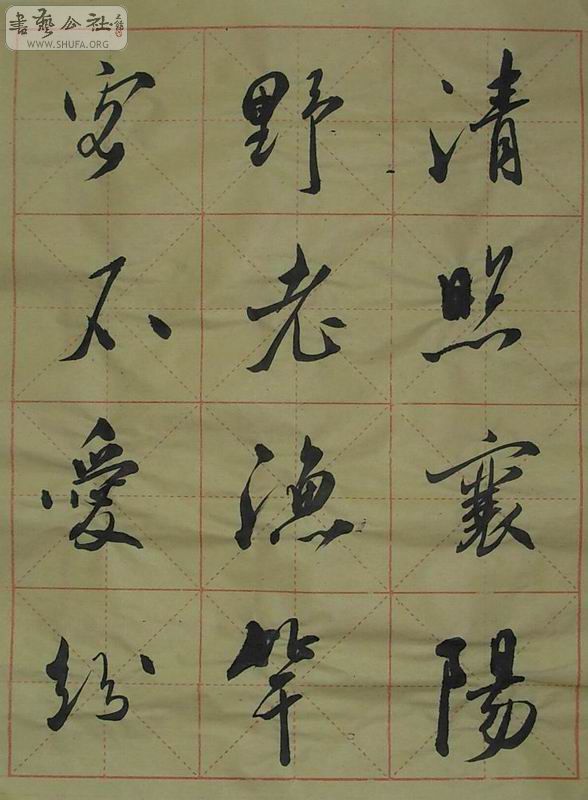 書藝公社
WWW.SHUFA.ORG
清照襄陽
野老漁竿
客不愛紛